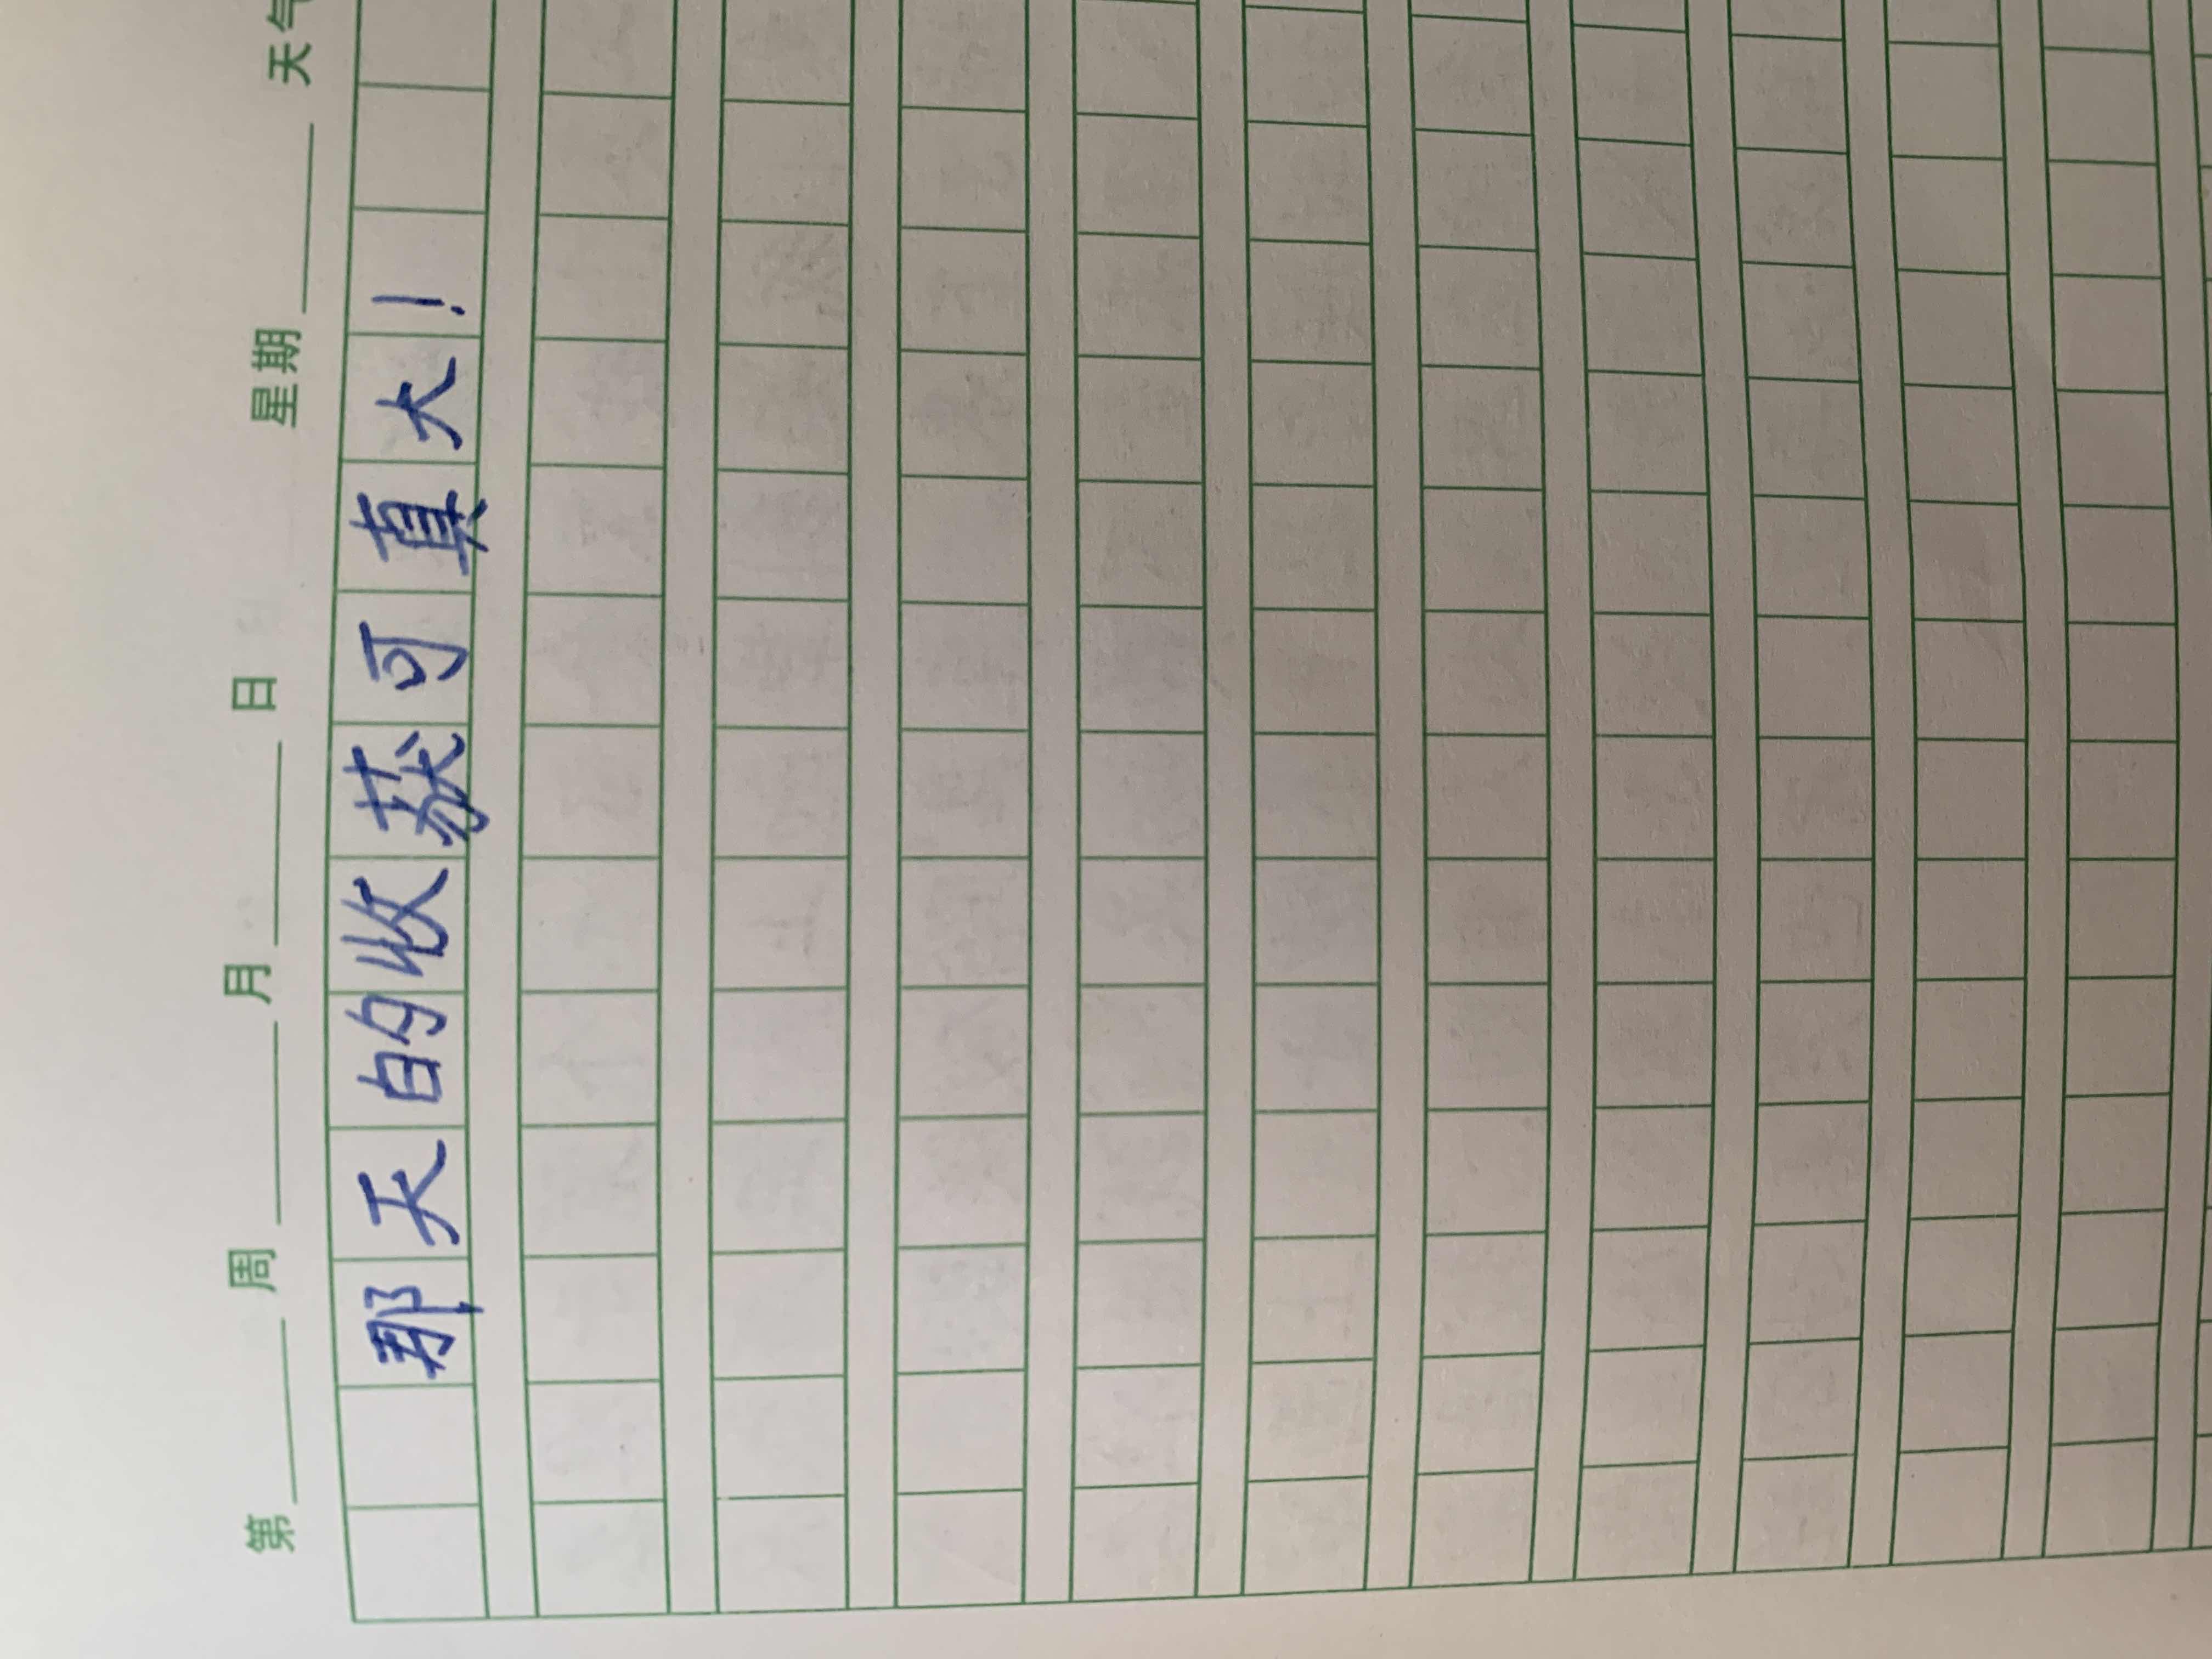 第 周 月 日 星期 天气
那天的收获可真大！